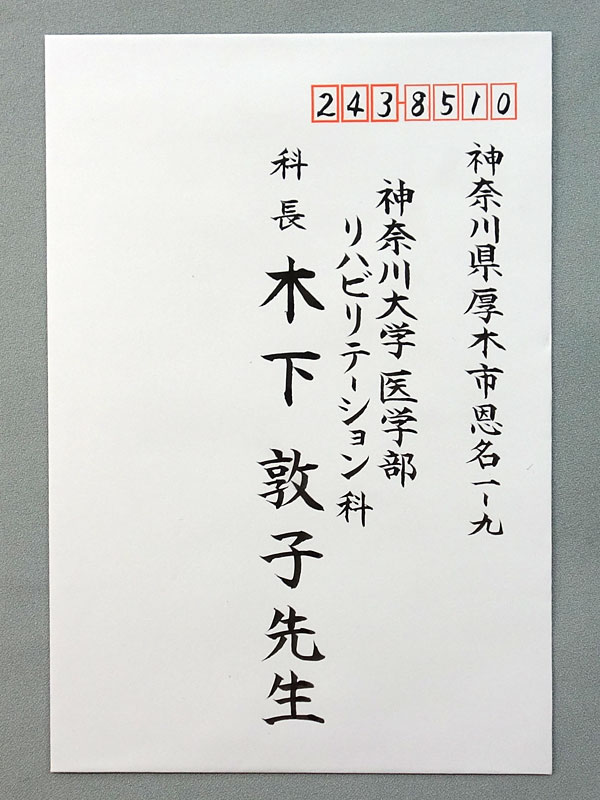 243-8510
神奈川県厚木市恩名一-九
神奈川大学 医学部
リハビリテーション科
科長 木下 敦子先生